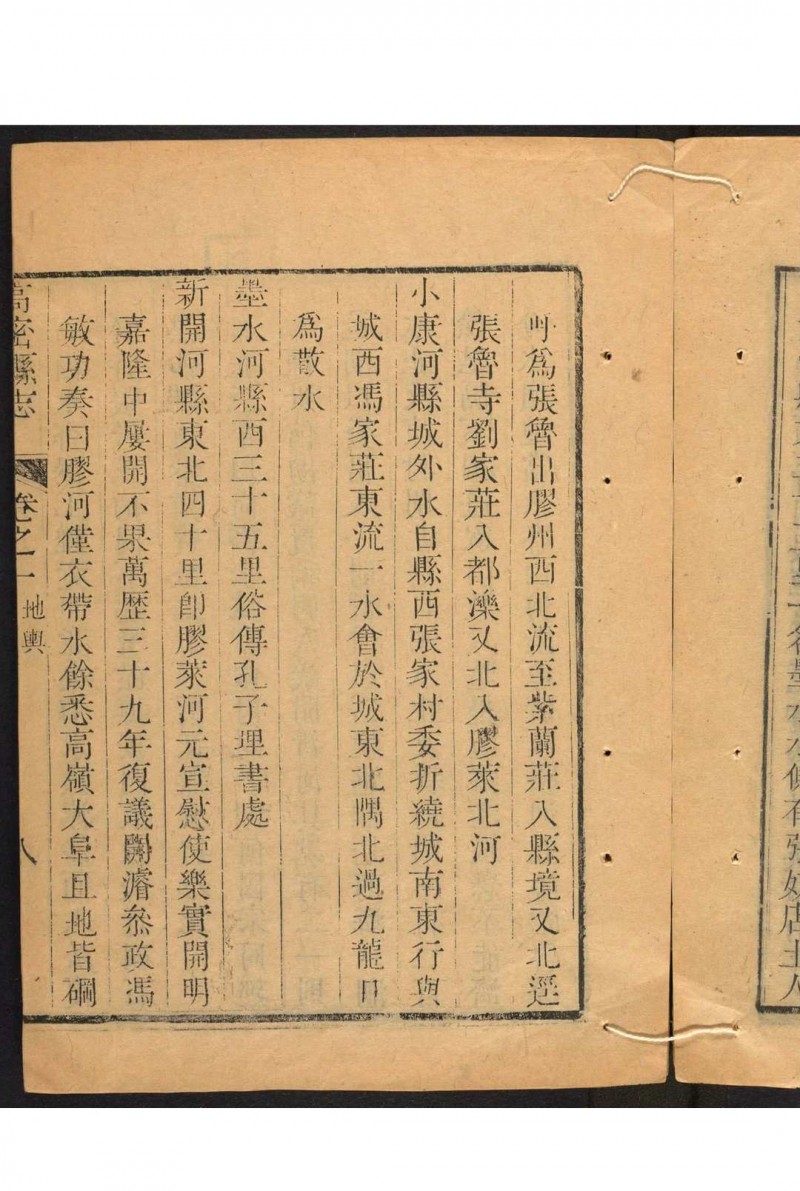 爲張魯出膠州西北流至紫蘭莊入縣境又北逕
張魯寺劉家莊入都濼又北入膠萊北河
小康河縣城外水自縣西張家村委折繞城南東行與
城西馮家莊東流一水會於城東北隅北過九龍
爲散水
墨水河縣西三十五里俗傳孔子埋書處
新開河縣東北四十里卽膠萊河元宣慰使樂實開明
嘉隆中屢開不果萬歷三十九年復議開濬叅政馮
敏功奏曰膠河僅衣帶水餘悉高嶺大阜且地皆磵
高密縣志
卷之一
地輿
八